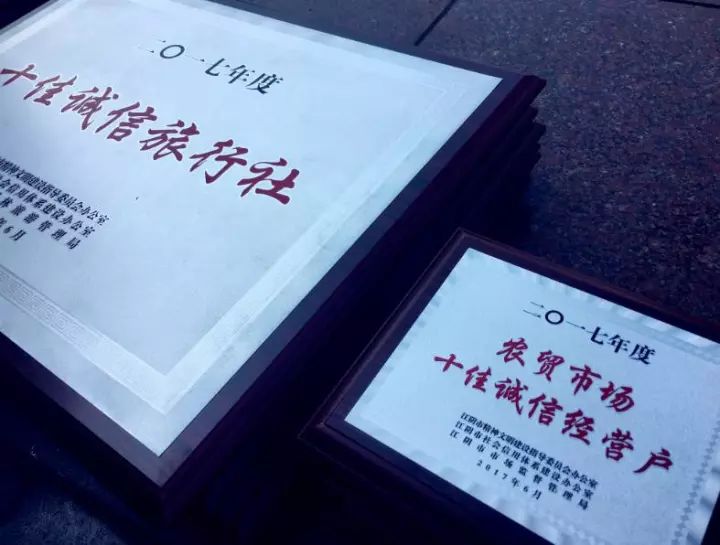 二〇一七年度
十佳诚信旅行社
精神文明建设指导委员会办公室
社会信用体系建设办公室
旅游管理局
年6月
二〇一七年度
农贸市场
十佳诚信经营户
江阴市精神文明建设指导委员会办公室
江阴市社会信用体系建设办公室
江阴市市场监督管理局
2017年6月